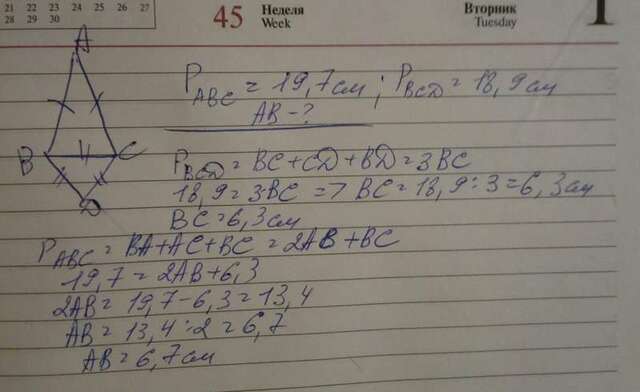 21 22 23 24 25 26 27
28 29 30
45 Неделя Вторник
Week Tuesday
A
B C
D
P_ABC = 19,7см ; P_BCD = 18,9см
AB - ?
P_BCD = BC + CD + BD = 3BC
18,9 = 3BC => BC = 18,9 : 3 = 6,3см
BC = 6,3см
P_ABC = BA + AC + BC = 2AB + BC
19,7 = 2AB + 6,3
2AB = 19,7 - 6,3 = 13,4
AB = 13,4 : 2 = 6,7
AB = 6,7см